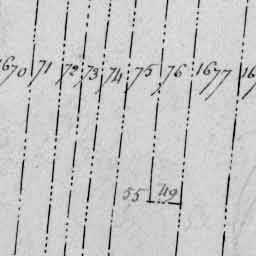 1670 71 72 73 74 75 76 1677 16
55 49